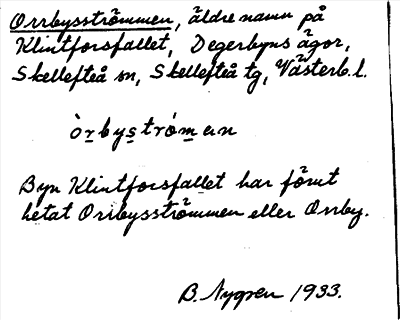 Orrbysströmmen, äldre namn på
Klintforsfallet, Degerbyns ägor,
Skellefteå sn, Skellefteå tg, Västerb.l.
òrbyström an
Byn Klintforsfallet har förut
hetat Orrbysströmmen eller Orrby.
B. Nygren 1933.